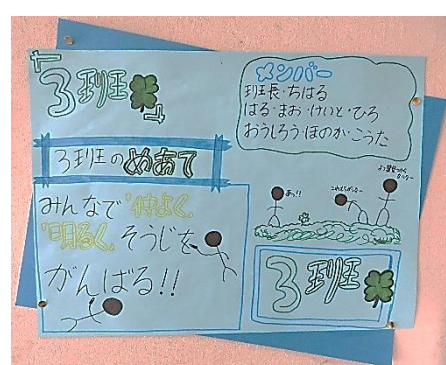 3班
メンバー
班長・ちはる
はる・まお・けいと・ひろ
おうしろう・ほのか・こうた
3班のめあて
みんなで"仲よく、
"明るく、そうじを
がんばる!!
あっ!!
3班